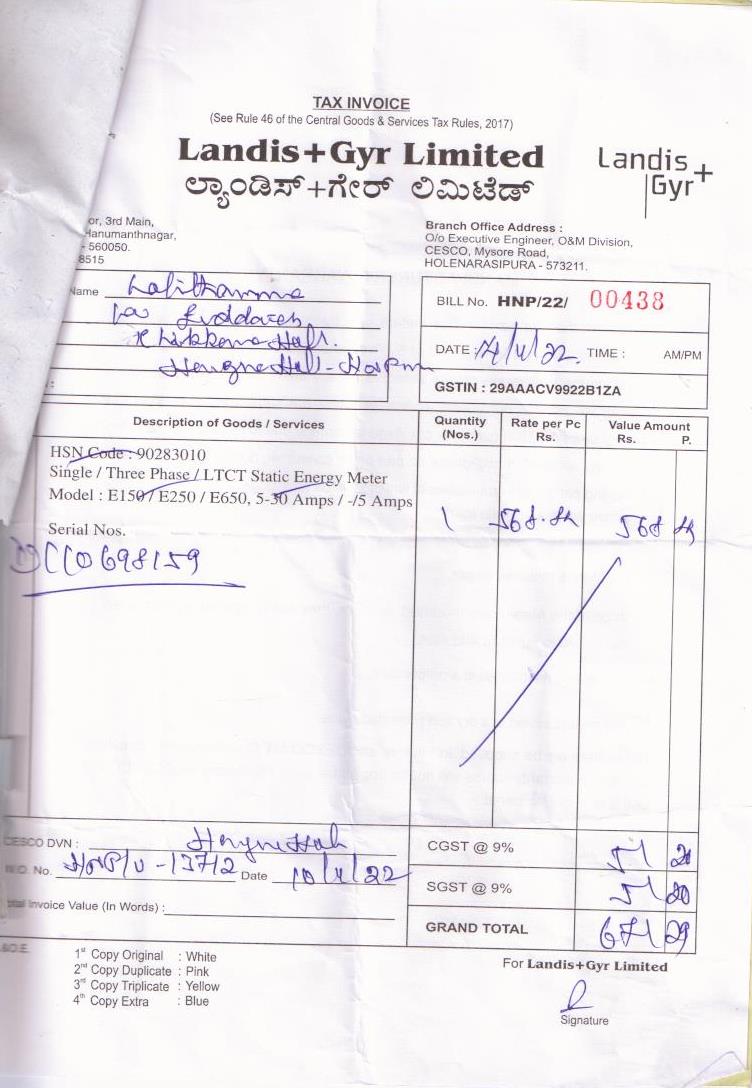 TAX INVOICE
(See Rule 46 of the Central Goods & Services Tax Rules, 2017)
Landis+Gyr Limited
ಲ್ಯಾಂಡಿಸ್+ಗೇರ್ ಲಿಮಿಟೆಡ್
Landis+
Gyr
or, 3rd Main,
Hanumanthnagar,
- 560050.
8515
Branch Office Address :
O/o Executive Engineer, O&M Division,
CESCO, Mysore Road,
HOLENARASIPURA - 573211.
Name Lalithamma
BILL No. HNP/22/ 00438
DATE : /22. TIME : AM/PM
GSTIN : 29AAACV9922B1ZA
Description of Goods / Services
Quantity (Nos.)
Rate per Pc Rs.
Value Amount Rs. P.
HSN Code : 90283010
Single / Three Phase / LTCT Static Energy Meter
Model : E150 / E250 / E650, 5-30 Amps / -/5 Amps
1 568 568
Serial Nos.
698159
CESCO DVN :
W.O. No. Date 22
Total Invoice Value (In Words) :
CGST @ 9% 51 20
SGST @ 9% 51 20
GRAND TOTAL 671 29
& O.E.
1st Copy Original : White
2nd Copy Duplicate : Pink
3rd Copy Triplicate : Yellow
4th Copy Extra : Blue
For Landis+Gyr Limited
Signature